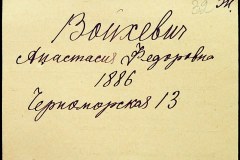 Войхевич
Анастасия Федоровна
1886
Черноморская 13